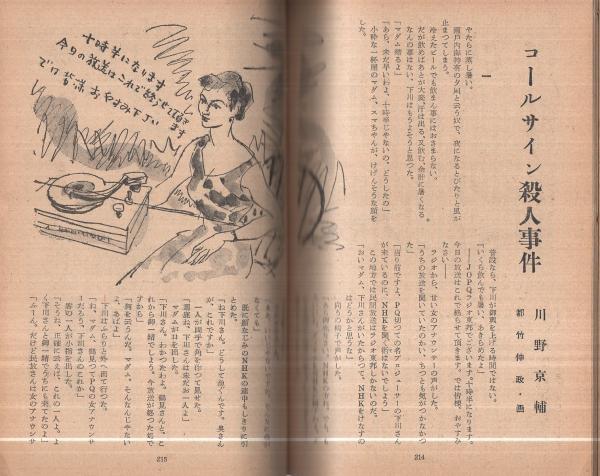 コールサイン殺人事件
川野京輔
都竹伸政・画
一
やたらに蒸し暑い。
瀬戸内海特有の夕凪と云う奴で、夜になるとぴたりと風が
止まってしまう。
冷えたビールでも飲まん事にはおさまらない。
だが飲めばあとが大変、汗は出る、又飲む、余計に暑くなる
なんの事はない、下川はもうよそうと思った。
「マダム帰るよ」
「あら、未だ早いわよ、十時半じゃないの、どうしたの」
小粋な一杯屋のマダム、スマちゃんが、けげんそうな顔を
した。
普段なら、下川が御輿を上げる時間ではない。
「いくら飲んでも暑い、あきらめたよ」
――JOPQラジオ東邦でございます。十時半になります。
今日の放送はこれで終らせて頂きます。では皆様、おやすみ
なさい――
ラジオから、甘い女のアナウンサーの声がした。
「うちの放送を聞いていたのかい、ちっとも気がつかなかっ
た」
「当り前ですよ、PQ切っての名プロジューサーの下川さん
が来ているのに、NHKを聞く術はないでしょう」
この地方では民間放送はラジオ東邦しかないのだ。
「おいマダム、下川さんがいたからって、NHKをけなすの
はどうかと思うな」
向うの椅子で声がした。
214
十時半になります
今日の放送はこれで終らせて頂きます
では皆様おやすみ下さい
なくても」
既に顔なじみのNHKの連中もしきりに引
とめた。
「ね下川さん。どうして急ぐんです。奥さん
が、これですか」
一人が両手で角を作つて見せた。
「馬鹿ね、下川さんは未だお一人よ」
マダムが口を出した。
「下川さん、わかつたわよ、鶴見さんと、こ
れから御一緒でしょう。今放送が終つた処で
すから」
「何を云うんだ、マダム、そんなんじゃない
よ、あばよ」
下川はふらりと外へ出て行つた。
「ね、マダム、鶴見つてPQの女アナウンサ
ーだろう、下川さんのこれか」
客の一人が小指を出した。
「そうよ、正式に云えばこれの一人よ。よ
く下川さんと御一緒でうちにも来てたのよ」
「ふーん。だけど民放さんは女のアナウンサ
215